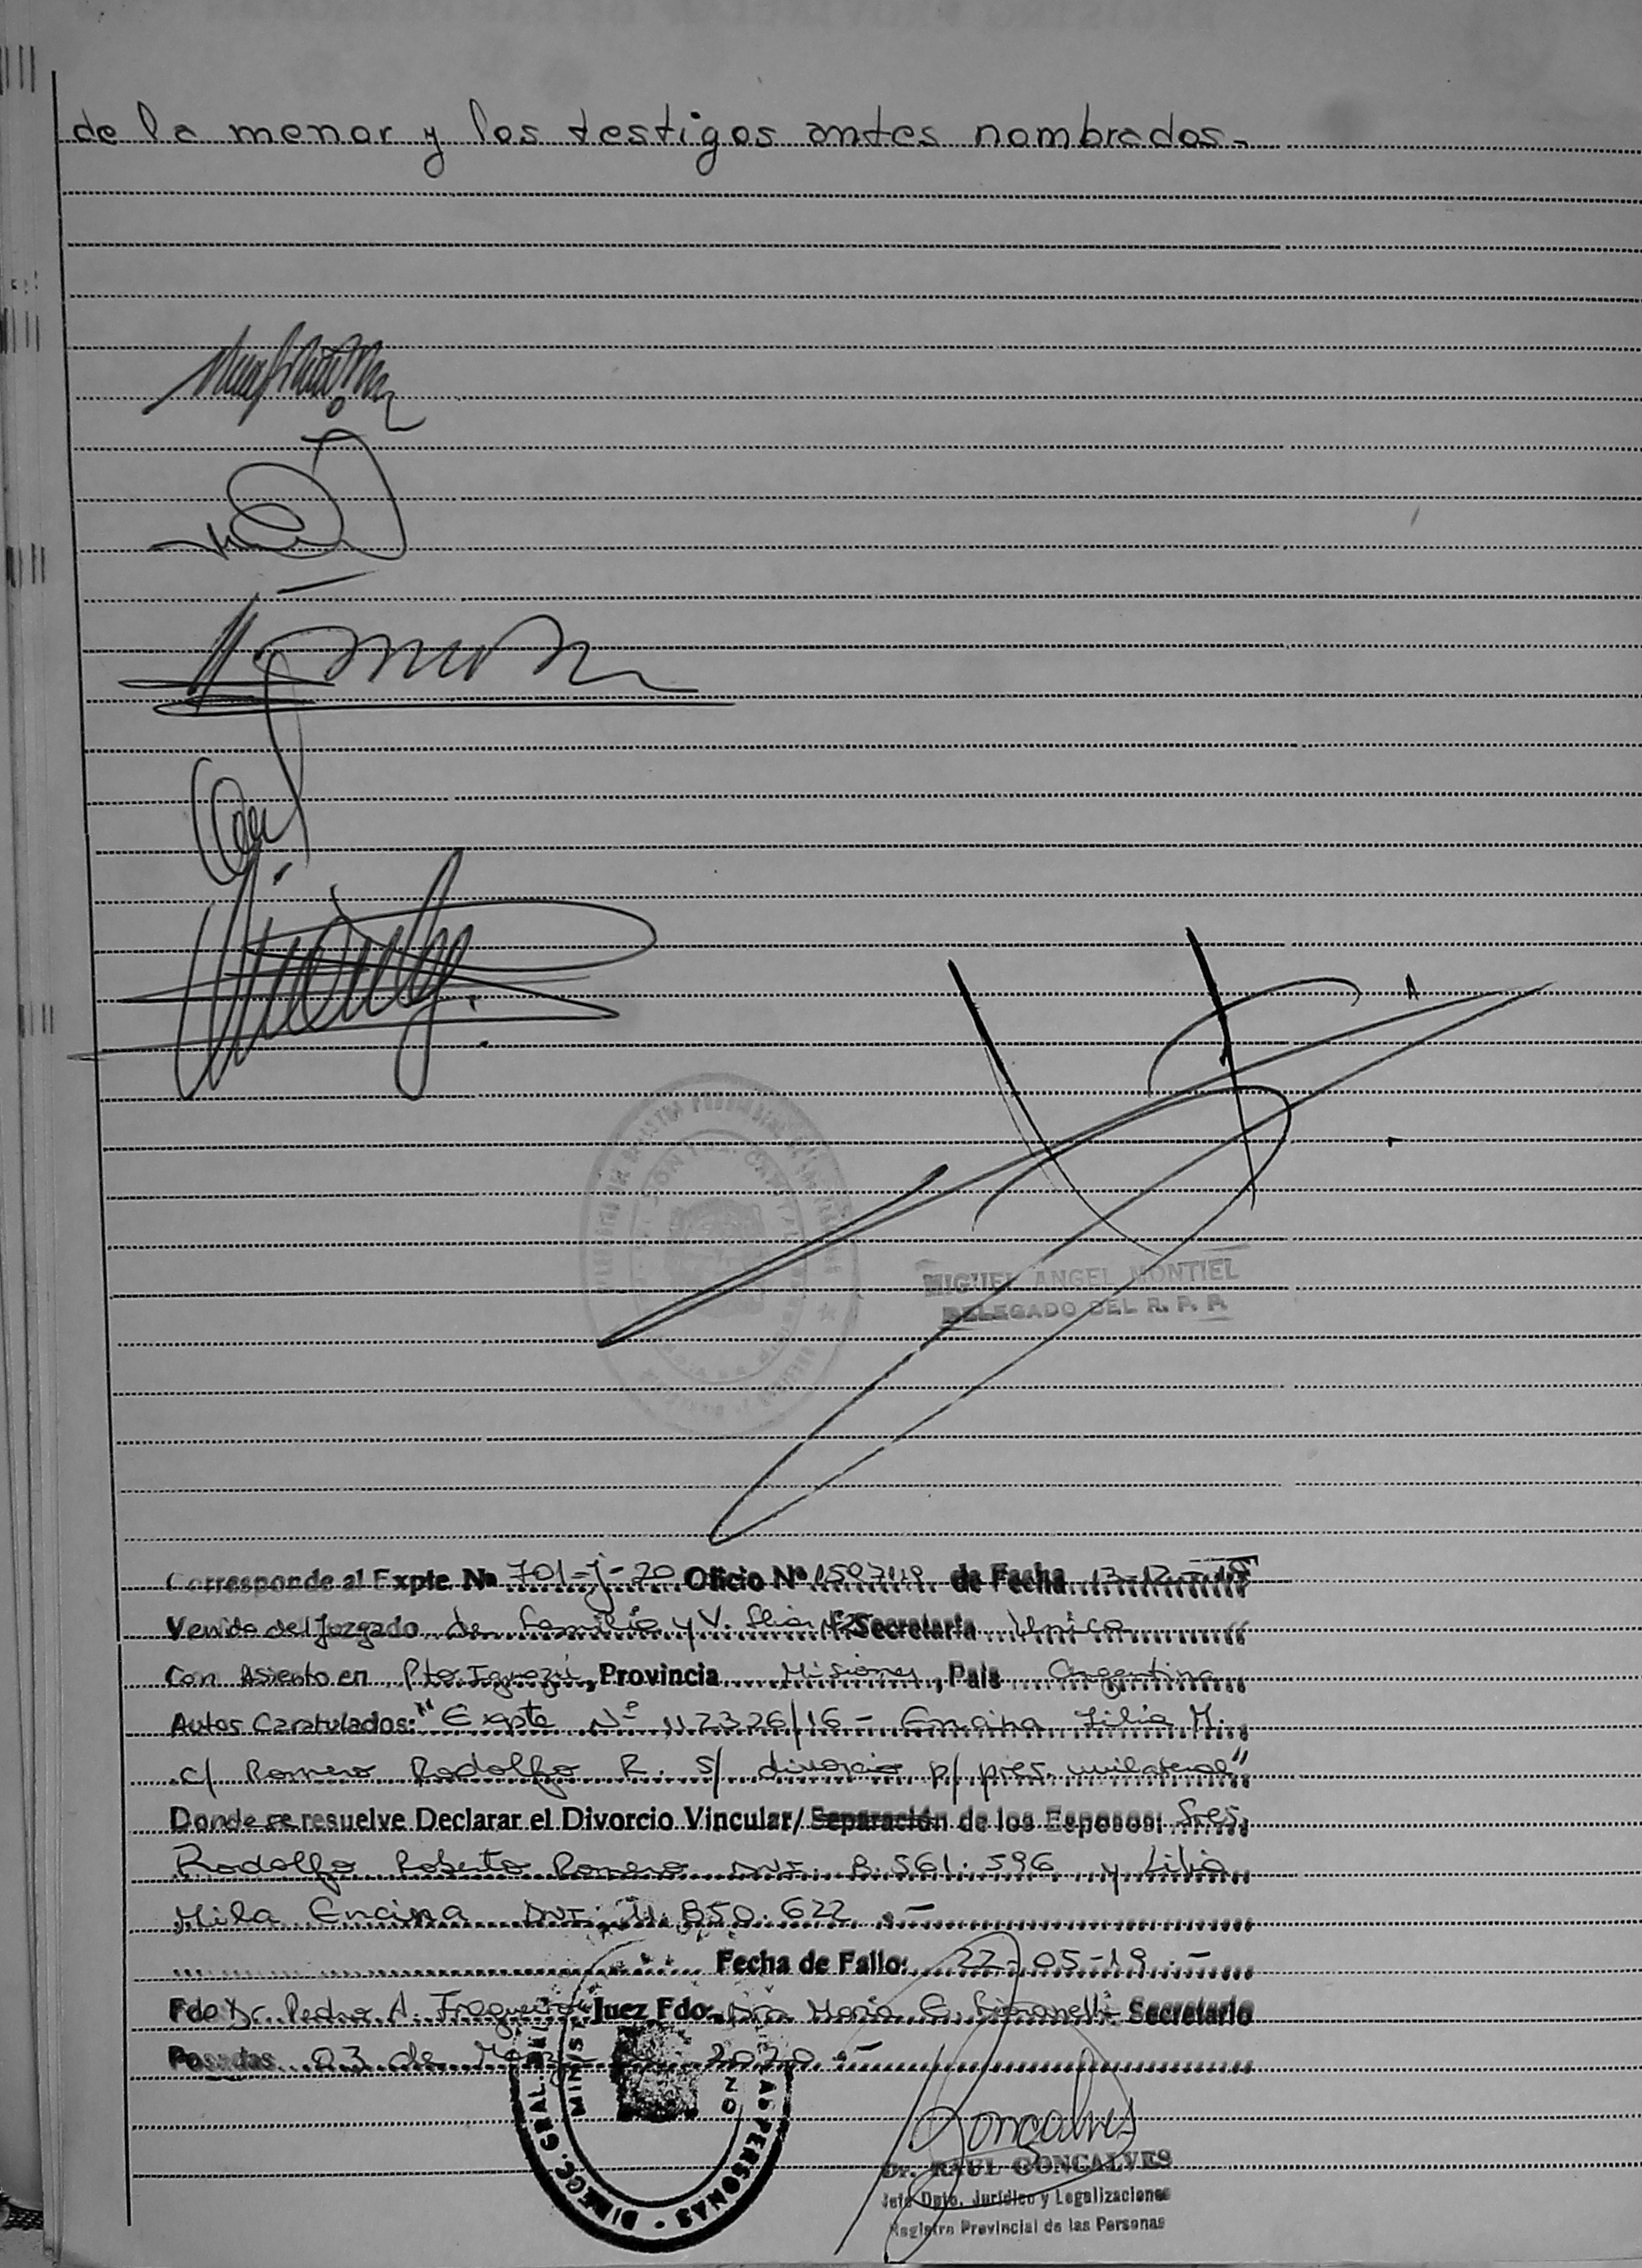 de la menor y los testigos antes nombrados.-
MIGUEL ANGEL MONTIEL
DELEGADO DEL R. P. P.
Corresponde al Expte Nº 701-J-20 Oficio Nº 1597/19 de Fecha 13-12-
Venido del Juzgado de Familia y V. Secretaria Unica
Con Asiento en Pto. Iguazú, Provincia Misiones, Pais Argentina
Autos Caratulados: "Expte Nº 112326/16 - Encina Lilia M.
c/ Romero Rodolfo R. s/ divorcio p/ pres. unilateral"
Donde se resuelve Declarar el Divorcio Vincular/ Separación de los Esposos: Sres.
Rodolfo Roberto Romero DNI. 8.561.596 y Lilia
Mila Encina DNI: 11.850.622 .-
Fecha de Fallo: 22-05-19.-
Fdo Dr. Pedro A. Juez Fdo: Dra Maria G. Secretario
Posadas 03 de 2020.-
DIRECC. GRAL. PERSONAS
Goncalves
Dr. RAUL GONCALVES
Jefe Dpto. Jurídico y Legalizaciones
Registro Provincial de las Personas